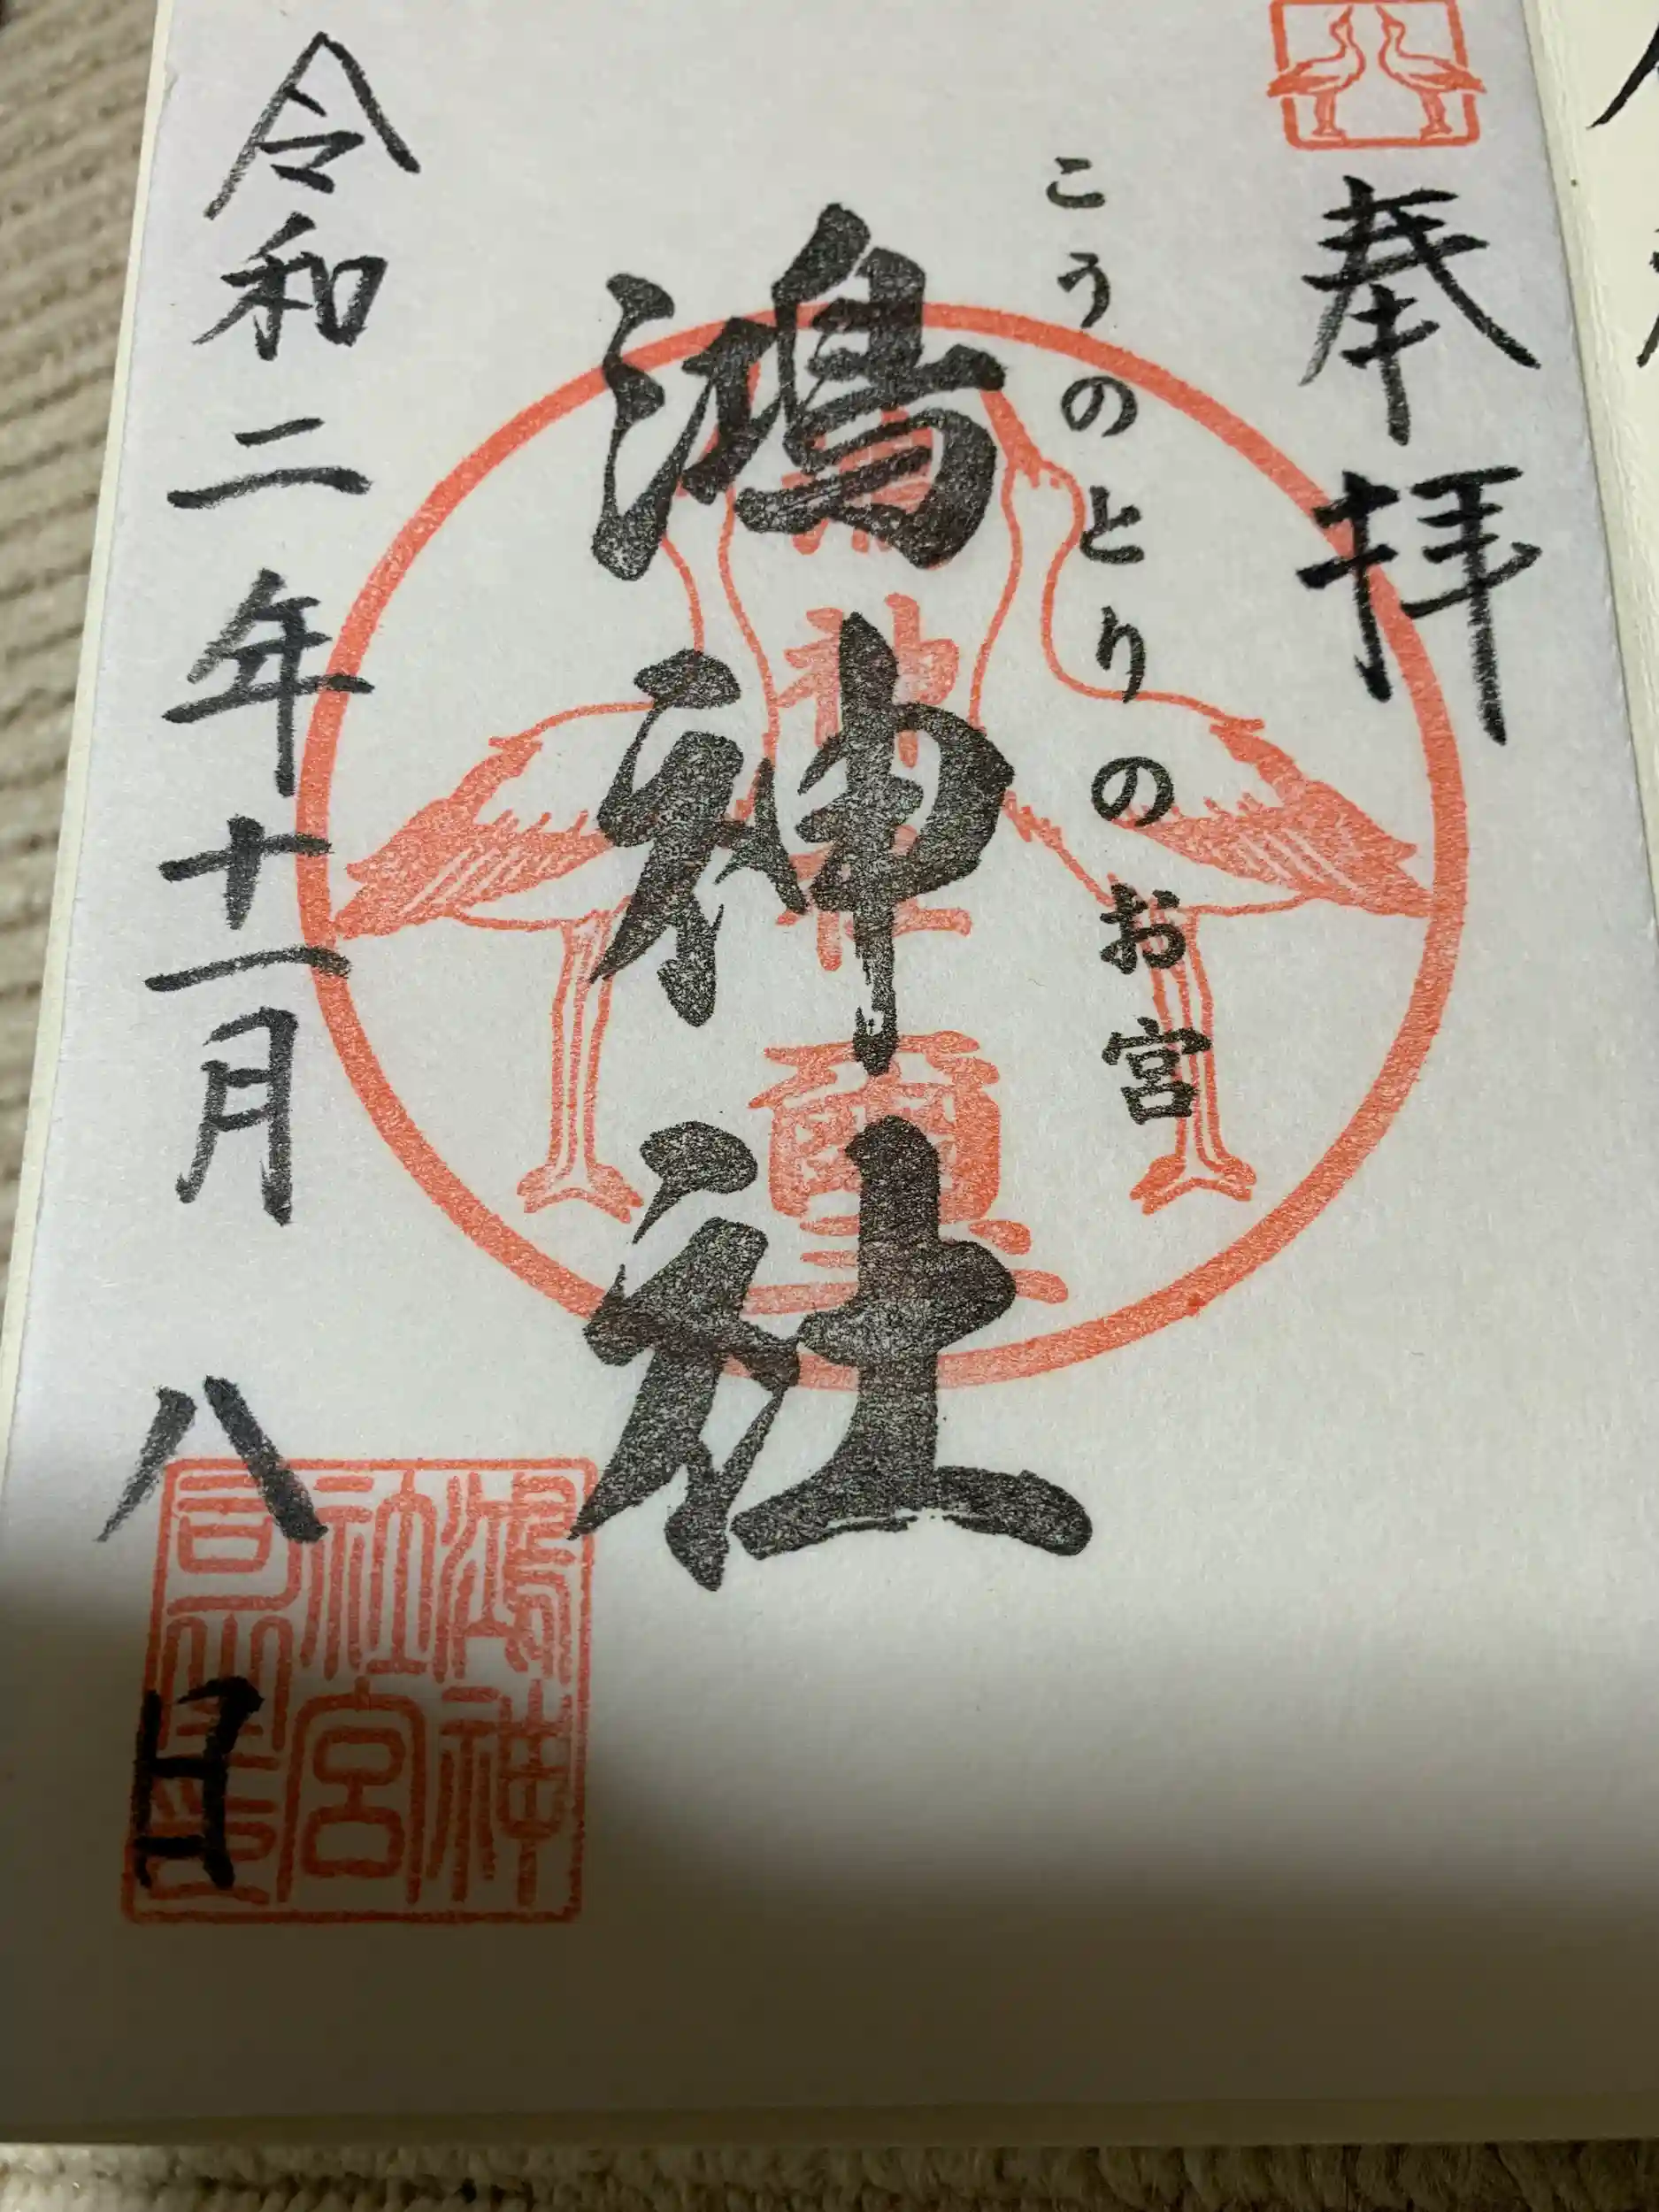 奉拝
こうのとりのお宮
鴻神社
鴻神社璽
令和二年十一月八日
鴻神
社宮
司之印